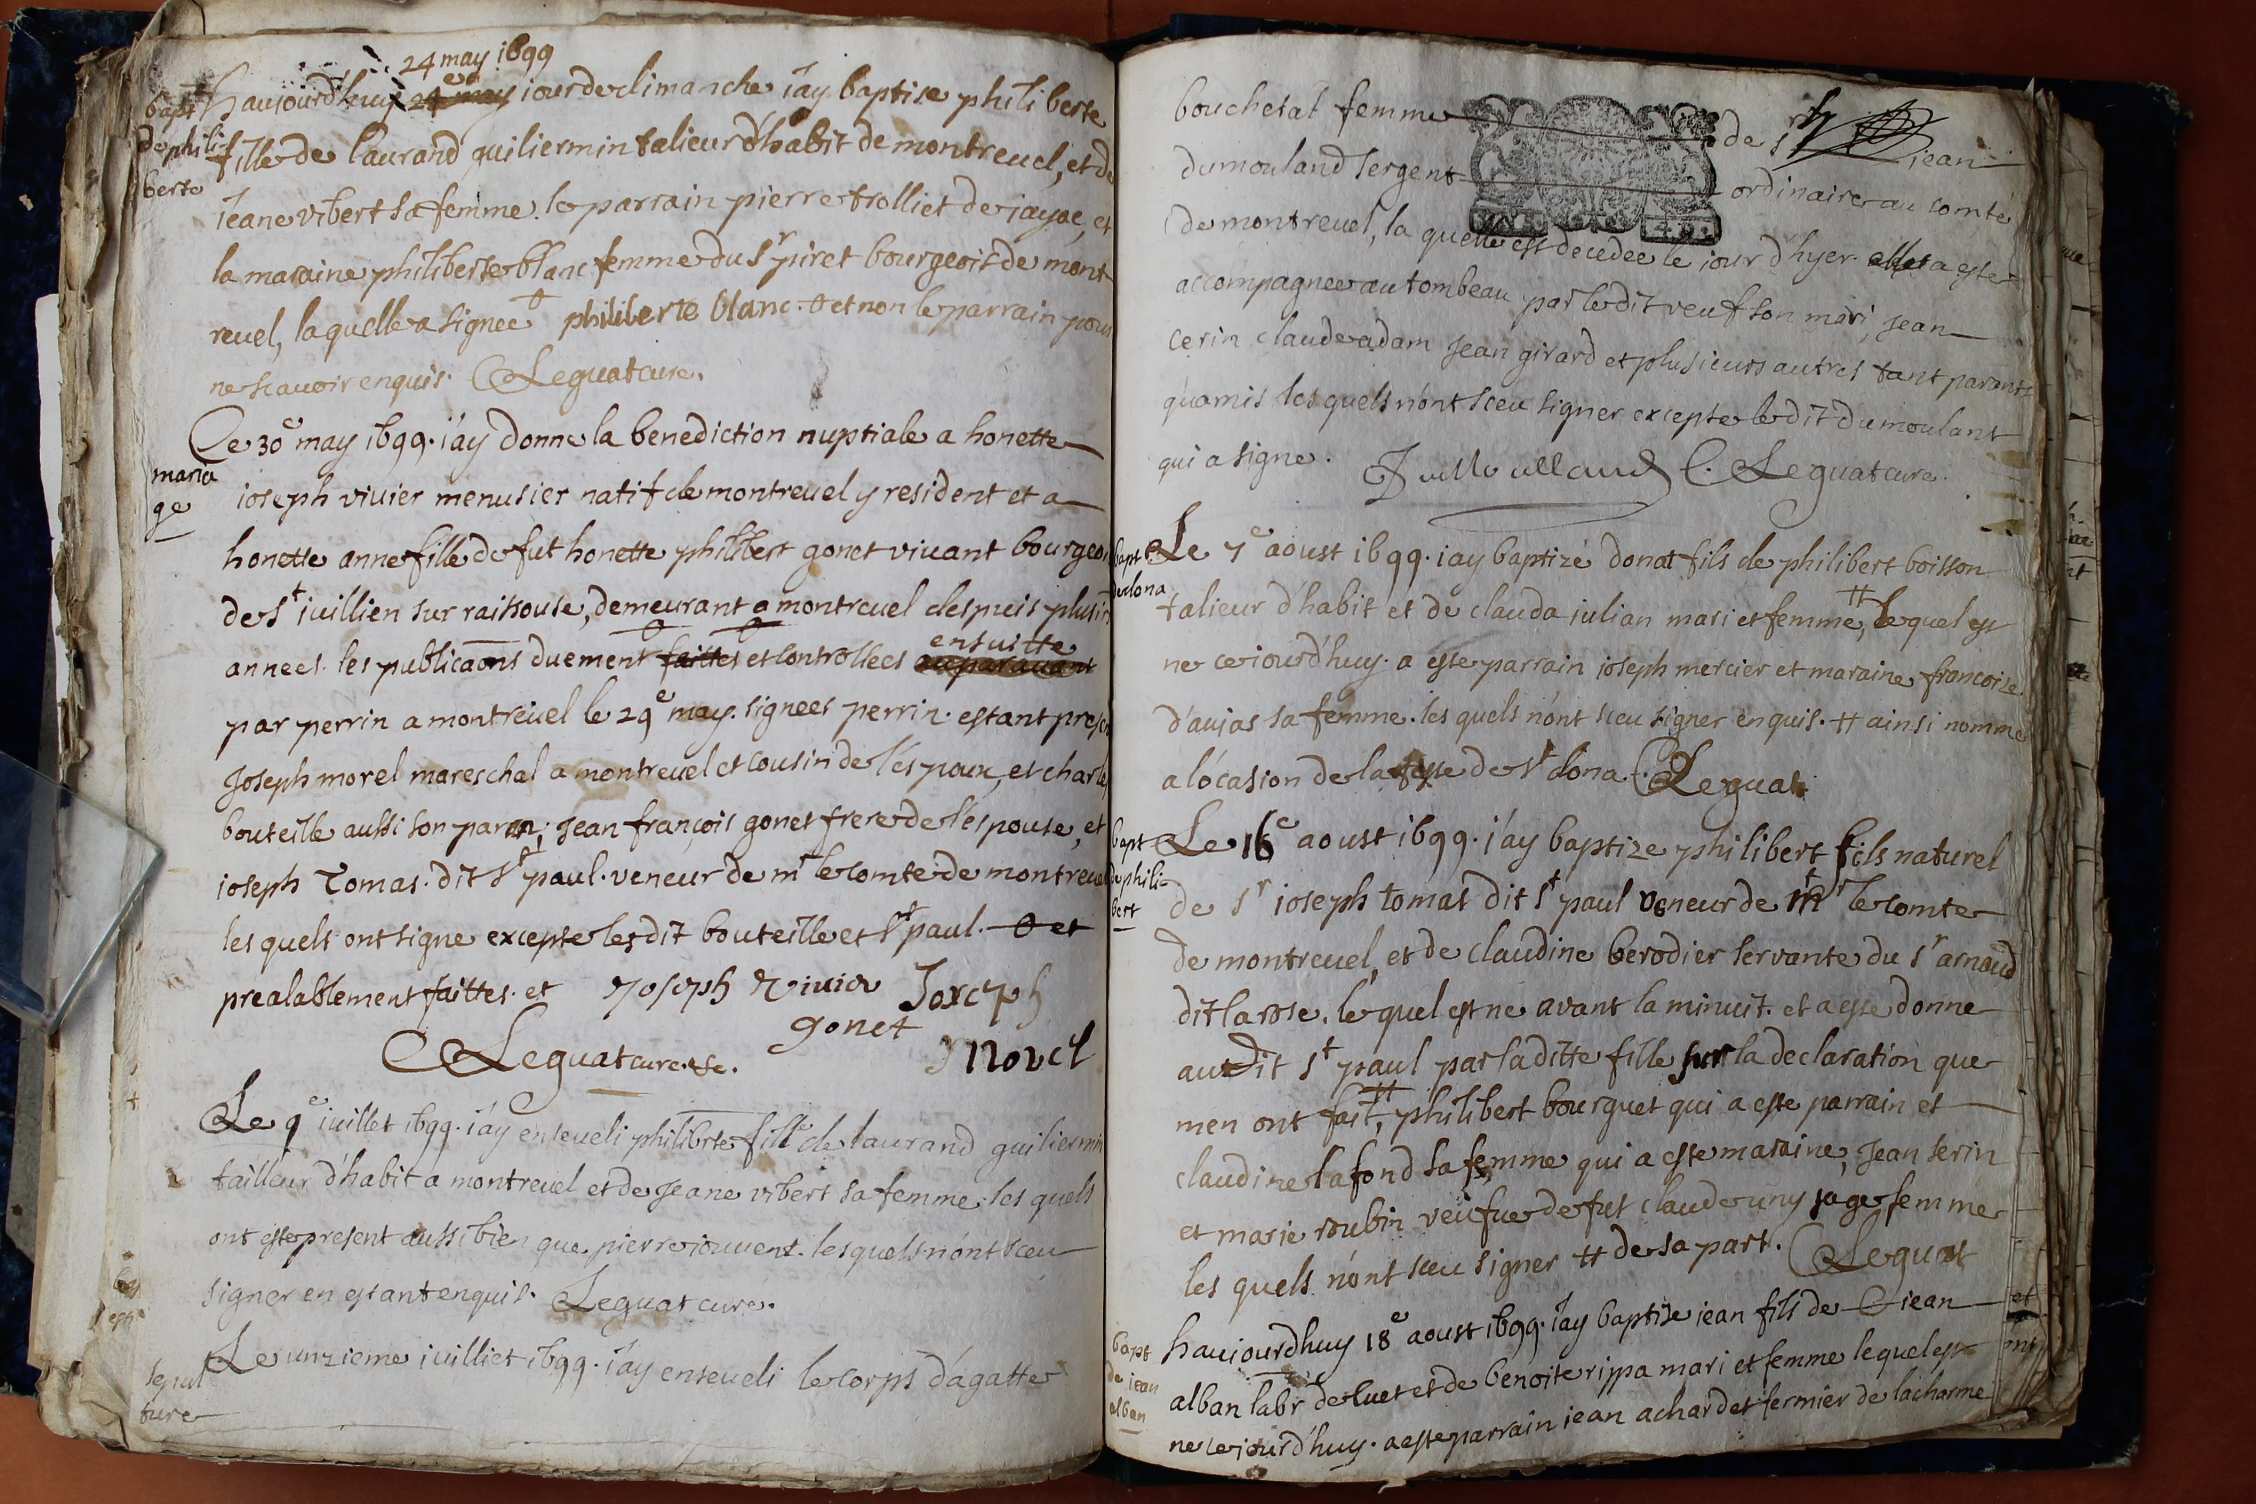 24 may 1699
bapt
de phili-
berte
haujourd'huy 24e may jour de dimanche i'ay baptise philiberte
fille de laurand guiliermin talieur d'habit de montreuel, et de
jeane vibert sa femme. le parrain pierre trolliet de jayac, et
la maraine philiberte blanc femme du Sr piret bourgeois de mont
reuel, laquelle a signee philiberte blanc. et non le parrain pour
ne scauoir enquis. Leguat cure.
maria
ge
Ce 30e may 1699. i'ay donne la benediction nuptiale a honette
ioseph viuier menusier natif de montreuel y resident et a
honette anne fille de fut honette philibert gonet viuant bourgeois
de st iuillien sur raissouse, demeurant a montreuel despuis plusirs
annees. les publicaōns duement faittes et controllees ensuitte
auparauant
par perrin a montreuel le 29e may. signees perrin. estant presen
Joseph morel mareschal a montreuel et cousin de l'espoux, et charles
bouteille aussi son parin; jean françois gonet frere de l'espouse, et
ioseph Tomas. dit st paul. veneur de mr le comte de montreuel
les quels ont signe excepte lesdit bouteille et st paul. et
prealablement faittes. et Joseph Viuier Joseph
gonet J morel
Leguat cure. &c.
Le 9e iuillet 1699. i'ay enseueli philibrte fille de laurand guiliermin
tailleur d'habit a montreuel et de Jeane vibert sa femme. les quels
ont este present aussi bien que pierre iouuent. lesquels n'ont sceu
signer en estant enquis. Leguat cure.
sepul
ture
Le unzieme iuilliet 1699. i'ay enseueli le corps d'agatte
bouchesal femme de sr jean
dumouland sergent ordinaire au comté
de montreuel, la quelle est decedee le jour d'hyer. elle a este
accompagnee au tombeau par le dit veuf son mari, Jean
cerin claude adam Jean girard et plusieurs autres tant parants
qu'amis les quels n'ont sceu signer excepte le dit dumoulant
qui a signe. J duMoulland Leguat cure.
bapt
de dona
Le 7e aoust 1699. i'ay baptizé donat fils de philibert boisson
talieur d'habit et de clauda iulian mari et femme, lequel est
ne ce iourd'huy. a este parrain ioseph mercier et maraine francoize
d'aujas sa femme. les quels n'ont sceu signer enquis. # ainsi nomme
a l'ocasion de la feste de st dona. Leguat
bapt
de phili-
bert
Le 16e aoust 1699. i'ay baptize philibert fils naturel
de Sr ioseph tomas dit st paul veneur de mr le comte
de montreuel, et de claudine berodier servante du Sr arnaud
dit larose. le quel est ne avant la minuit. et a este donne
audit st paul par laditte fille sur la declaration que
men ont fait, philibert bourguet qui a este parrain et
claudine lafond sa femme qui a este maraine, Jean serin
et marie roubin veufue de fut claude uny sage femme
les quels n'ont sceu signer # de sa part. Leguat
bapt
de iean
alban
haujourdhuy 18e aoust 1699. i'ay baptize iean fils de iean
alban labr de luet et de benoite rippa mari et femme lequel est
ne ce iourd'huy. a este parrain iean achard et fermier de lacharme